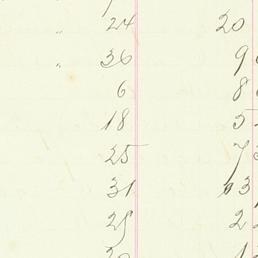 " 24 20
" 36 9
6 8
18 5
25 7
31 13
25 2